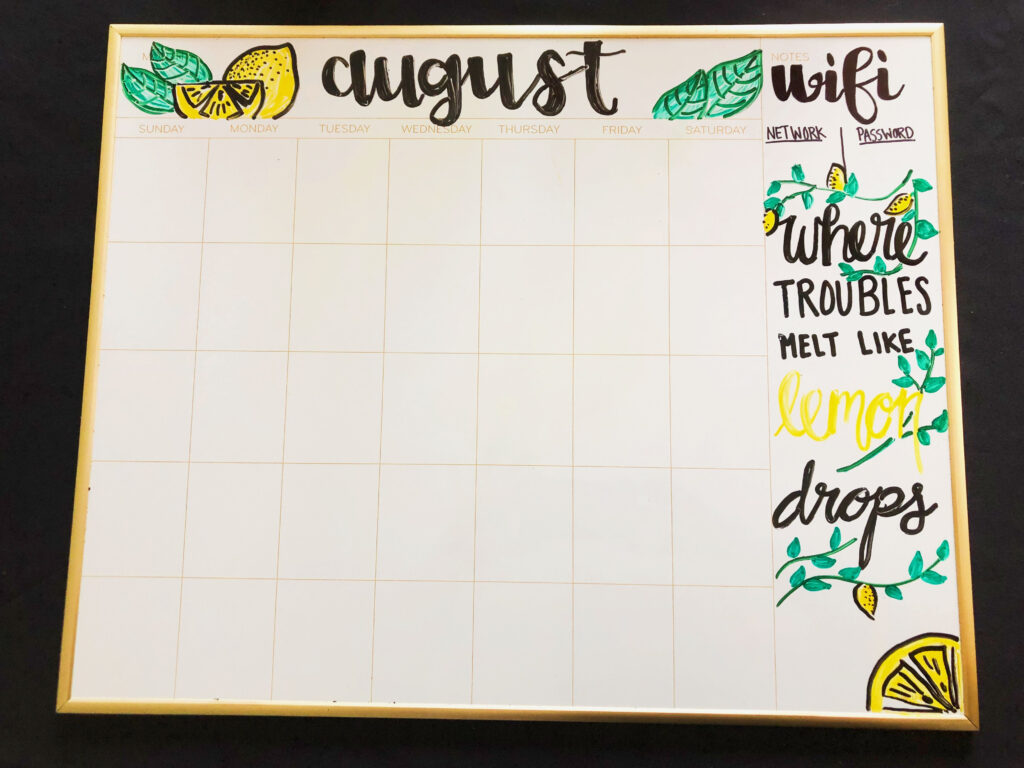 august
SUNDAY MONDAY TUESDAY WEDNESDAY THURSDAY FRIDAY SATURDAY
NOTES
wifi
NETWORK PASSWORD
where
TROUBLES
MELT LIKE
lemon
drops